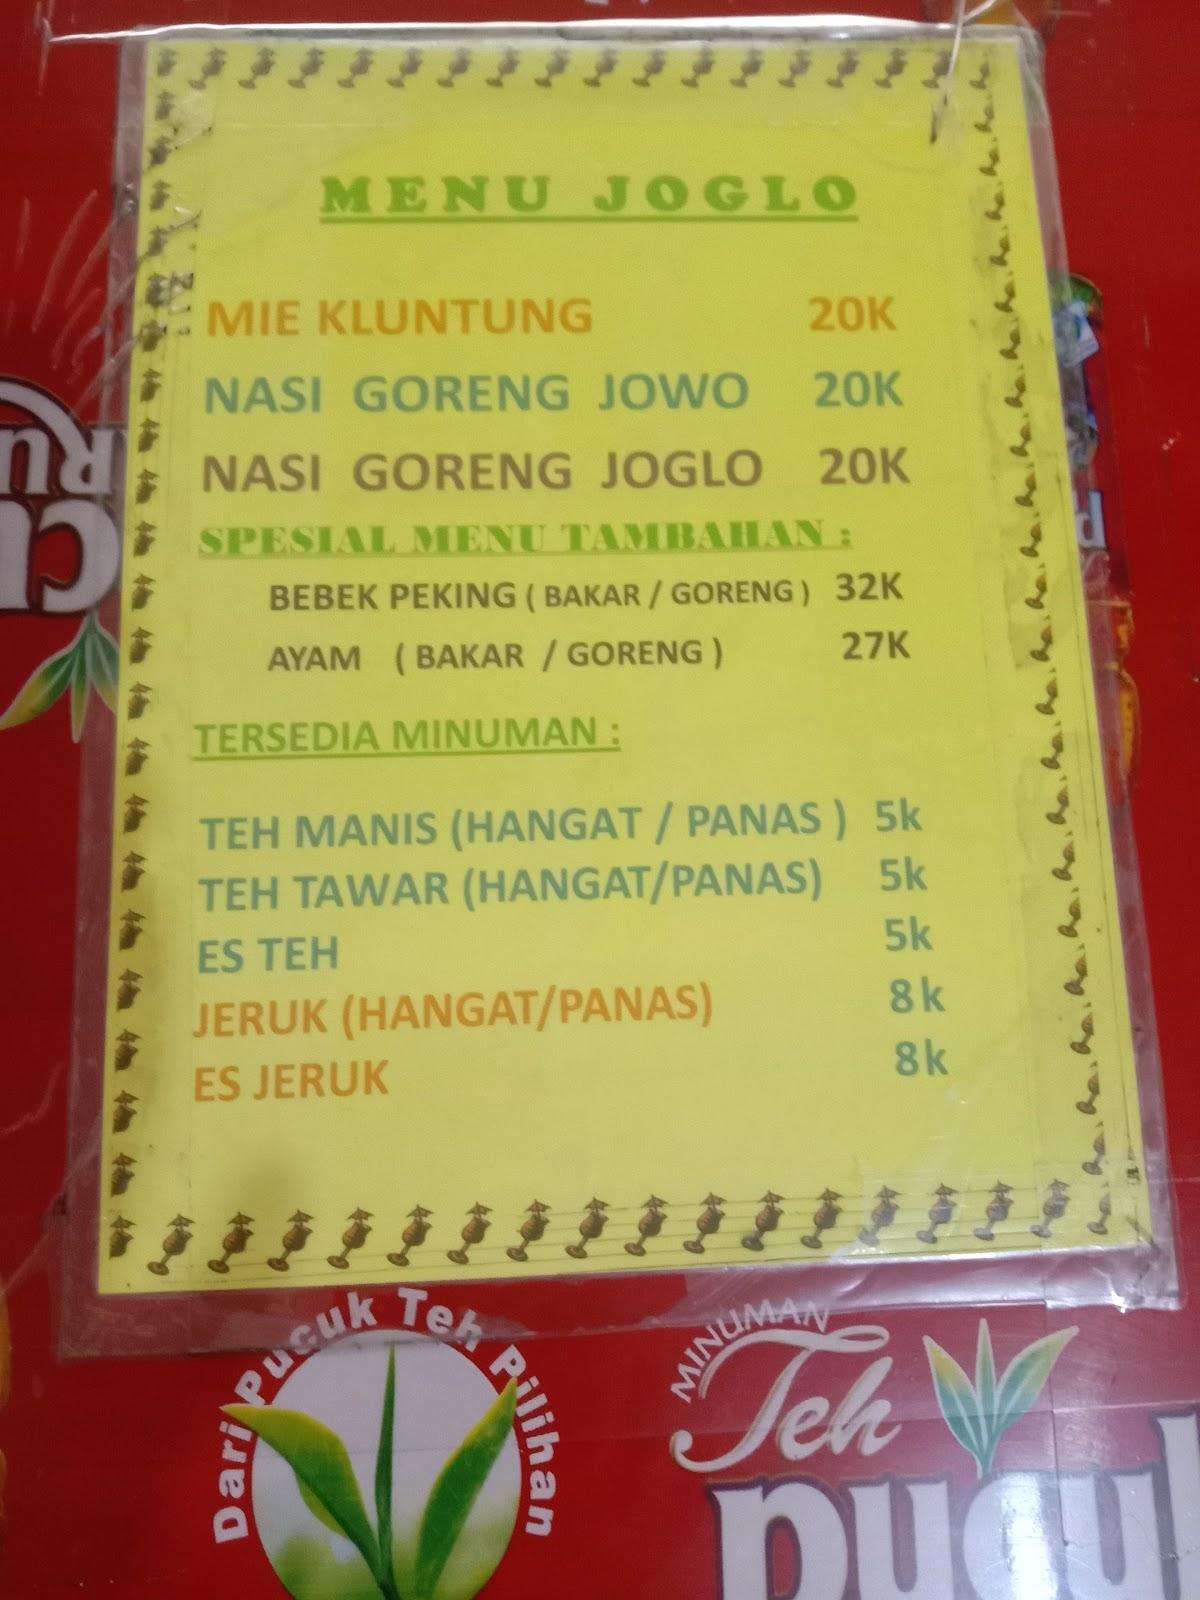 MENU JOGLO
MIE KLUNTUNG 20K
NASI GORENG JOWO 20K
NASI GORENG JOGLO 20K
SPESIAL MENU TAMBAHAN :
BEBEK PEKING ( BAKAR / GORENG ) 32K
AYAM ( BAKAR / GORENG ) 27K
TERSEDIA MINUMAN :
TEH MANIS (HANGAT / PANAS ) 5k
TEH TAWAR (HANGAT/PANAS) 5k
ES TEH 5k
JERUK (HANGAT/PANAS) 8k
ES JERUK 8k
Dari Pucuk Teh Pilihan
MINUMAN
Teh
pucuk